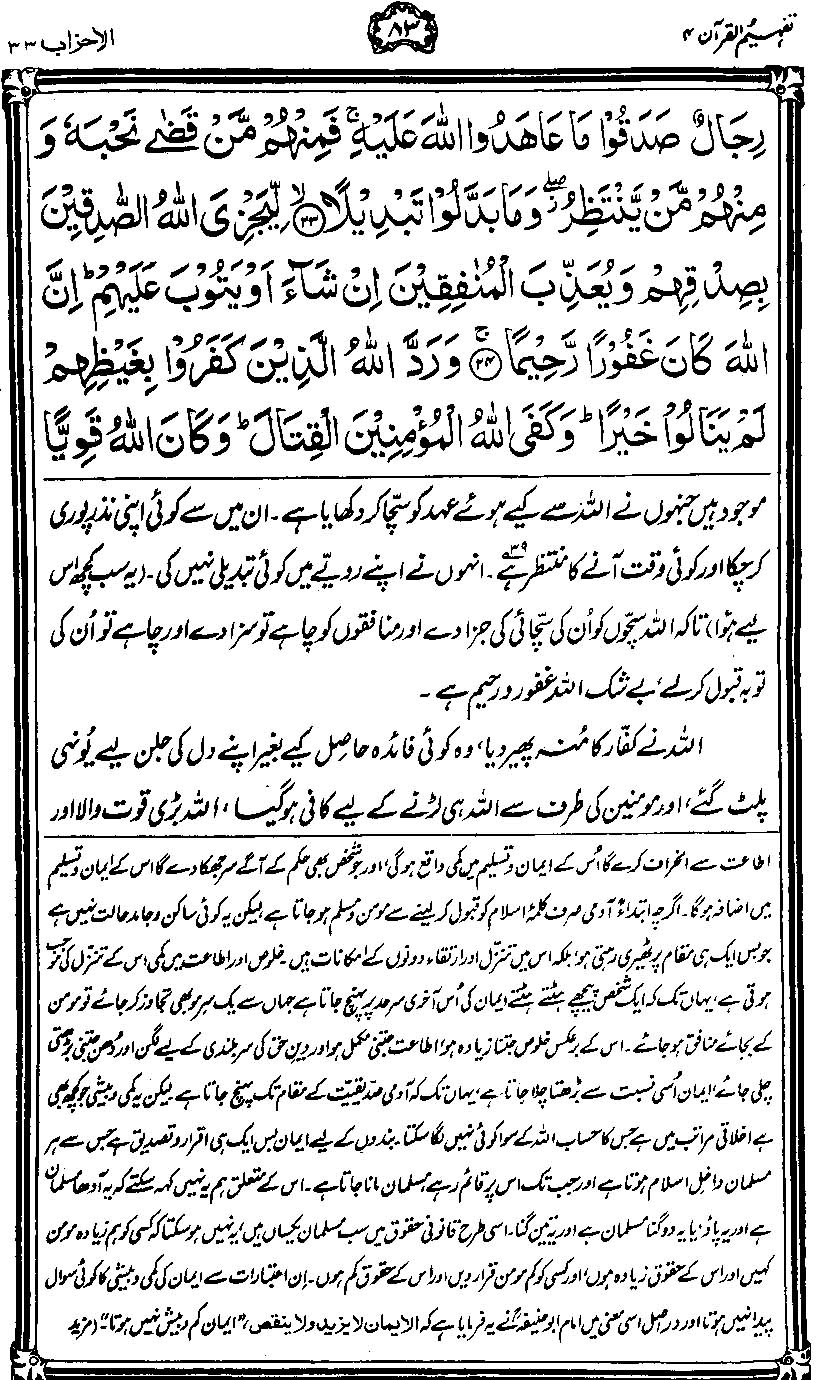 تفہیم القرآن ۴
۸۳
الاحزاب ۳۳
رِجَالٌ صَدَقُوْا مَا عَاهَدُوا اللّٰهَ عَلَيْهِ ۚ فَمِنْهُمْ مَّنْ قَضٰى نَحْبَهٗ وَ
مِنْهُمْ مَّنْ يَّنْتَظِرُ ۖ وَمَا بَدَّلُوْا تَبْدِيْلًا ﴿۲۳﴾ۙ لِّيَجْزِيَ اللّٰهُ الصّٰدِقِيْنَ
بِصِدْقِهِمْ وَيُعَذِّبَ الْمُنٰفِقِيْنَ اِنْ شَآءَ اَوْ يَتُوْبَ عَلَيْهِمْ ۭ اِنَّ
اللّٰهَ كَانَ غَفُوْرًا رَّحِيْمًا ﴿۲۴﴾ۚ وَرَدَّ اللّٰهُ الَّذِيْنَ كَفَرُوْا بِغَيْظِهِمْ
لَمْ يَنَالُوْا خَيْرًا ۭ وَكَفَى اللّٰهُ الْمُؤْمِنِيْنَ الْقِتَالَ ۭ وَكَانَ اللّٰهُ قَوِيًّا
موجود ہیں جنہوں نے اللہ سے کیے ہوئے عہد کو سچّا کر دکھایا ہے۔ ان میں سے کوئی اپنی نذر پوری
کر چکا اور کوئی وقت آنے کا منتظر ہے۳۹۔ انہوں نے اپنے رویّے میں کوئی تبدیلی نہیں کی۔ (یہ سب کچھ اس
لیے ہوا) تاکہ اللہ سچّوں کو اُن کی سچّائی کی جزا دے اور منافقوں کو چاہے تو سزا دے اور چاہے تو اُن کی
توبہ قبول کر لے، بے شک اللہ غفور و رحیم ہے۔
اللہ نے کفّار کا مُنہ پھیر دیا، وہ کوئی فائدہ حاصل کیے بغیر اپنے دل کی جلن لیے یُونہی
پلٹ گئے، اور مومنین کی طرف سے اللہ ہی لڑنے کے لیے کافی ہو گیا، اللہ بڑی قوت والا اور
اطاعت سے انحراف کرے گا اُس کے ایمان و تسلیم میں کمی واقع ہوگی، اور جو شخص بھی حکم کے آگے سر جھکا دے گا اس کے ایمان و تسلیم
میں اضافہ ہوگا۔ اگرچہ ابتداءً آدمی صرف کلمۂ اسلام کو قبول کر لینے سے مومن و مسلم ہو جاتا ہے لیکن یہ کوئی ساکن و جامد حالت نہیں ہے
جو بس ایک ہی مقام پر ٹھیری رہتی ہو، بلکہ اس میں تنزل اور ارتقاء دونوں کے امکانات ہیں۔ خلوص اور اطاعت میں کمی اس کے تنزل کی موجب
ہوتی ہے، یہاں تک کہ ایک شخص پیچھے ہٹتے ہٹتے ایمان کی اُس آخری سرحد پر پہنچ جاتا ہے جہاں سے یک سرِ مو بھی تجاوز کر جائے تو مومن
کے بجائے منافق ہو جائے۔ اس کے برعکس خلوص جتنا زیادہ ہو، اطاعت جتنی مکمل ہو اور دینِ حق کی سربلندی کے لیے لگن اور دُھن جتنی بڑھتی
چلی جائے، ایمان اُسی نسبت سے بڑھتا چلا جاتا ہے، یہاں تک کہ آدمی صدّیقیت کے مقام تک پہنچ جاتا ہے لیکن یہ کمی و بیشی جو کچھ بھی
ہے اخلاقی مراتب میں ہے جس کا حساب اللہ کے سوا کوئی نہیں لگا سکتا۔ بندوں کے لیے ایمان بس ایک ہی اقرار و تصدیق ہے جس سے ہر
مسلمان داخلِ اسلام ہوتا ہے اور جب تک اس پر قائم رہے مسلمان مانا جاتا ہے۔ اس کے متعلق ہم یہ نہیں کہہ سکتے کہ یہ آدھا مسلمان
ہے اور یہ پاؤ، یا یہ دوگنا مسلمان ہے اور یہ تین گنا۔ اسی طرح قانونی حقوق میں سب مسلمان یکساں ہیں، یہ نہیں ہو سکتا کہ کسی کو ہم زیادہ مومن
کہیں اور اس کے حقوق زیادہ ہوں، اور کسی کو کم مومن قرار دیں اور اس کے حقوق کم ہوں۔ اِن اعتبارات سے ایمان کی کمی و بیشی کا کوئی سوال
پیدا نہیں ہوتا اور دراصل اسی معنی میں امام ابو حنیفہؒ نے یہ فرمایا ہے کہ الایمان لا یزید ولا ینقص، "ایمان کم و بیش نہیں ہوتا"۔ (مزید